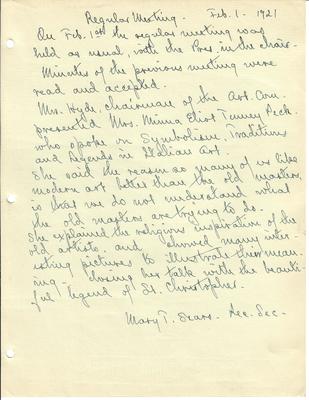 Regular Meeting. Feb. 1 - 1921
On Feb. 1st the regular meeting was
held as usual, with the Pres. in the chair.
Minutes of the previous meeting were
read and accepted.
Mrs. Hyde, chairman of the Art. Com.
presented Mrs. Minna Eliot Tenney Peck
who spoke on Symbolism, Traditions
and Legends in Italian Art.
She said the reason so many of us like
modern art better than the old masters,
is that we do not understand what
the old masters are trying to do.
She explained the religious inspiration of the
old artists and showed many inter-
esting pictures to illustrate their mean-
ing - closing her talk with the beauti-
ful legend of St. Christopher.
Mary T. Sears. Rec. Sec.